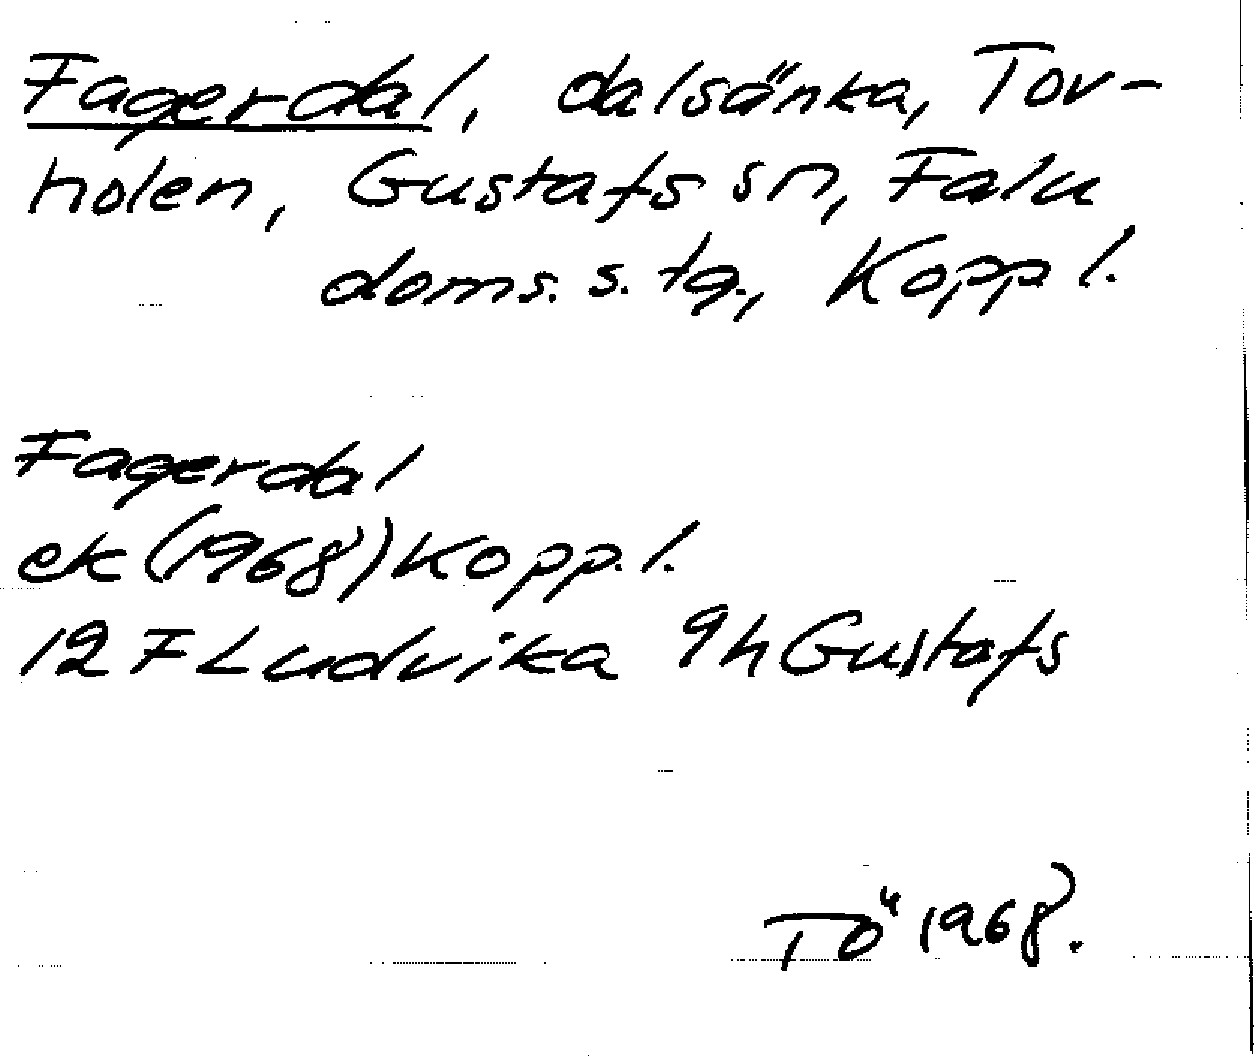 Fagerdal, dalsänka, Tov-
holen, Gustafs sn, Falu
doms. s. tg., Koppl.
Fagerdal
ek (1968) Kopp.l.
12 F Ludvika 9h Gustafs
TÖ 1968.